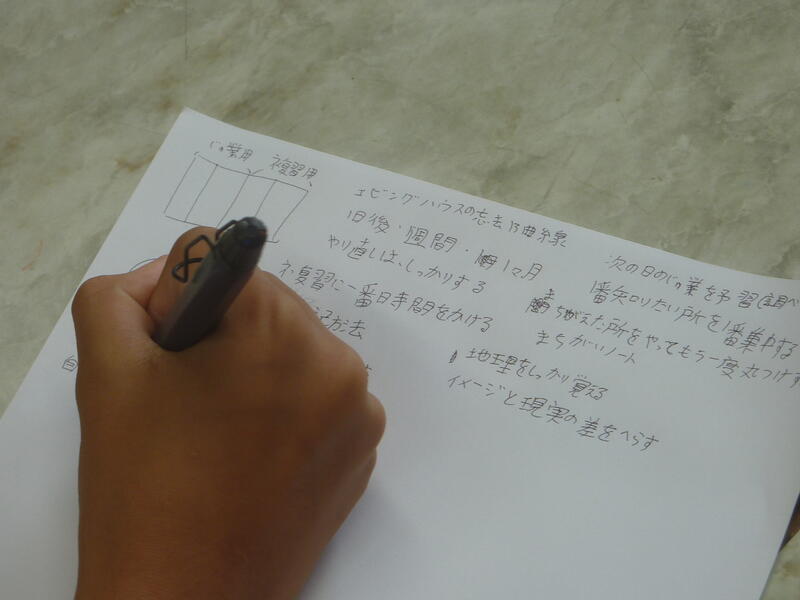 じゅ業用 復習用
エビングハウスの忘却曲線
1日後・1週間・1ヶ月
やり直しは、しっかりする
復習に一番時間をかける
記方法
自
次の日のじゅ業を予習(調べ
1番知りたい所を1番集中する
まちがえた所をやってもう一度丸つけす
まちがいノート
地理をしっかり覚える
イメージと現実の差をへらす